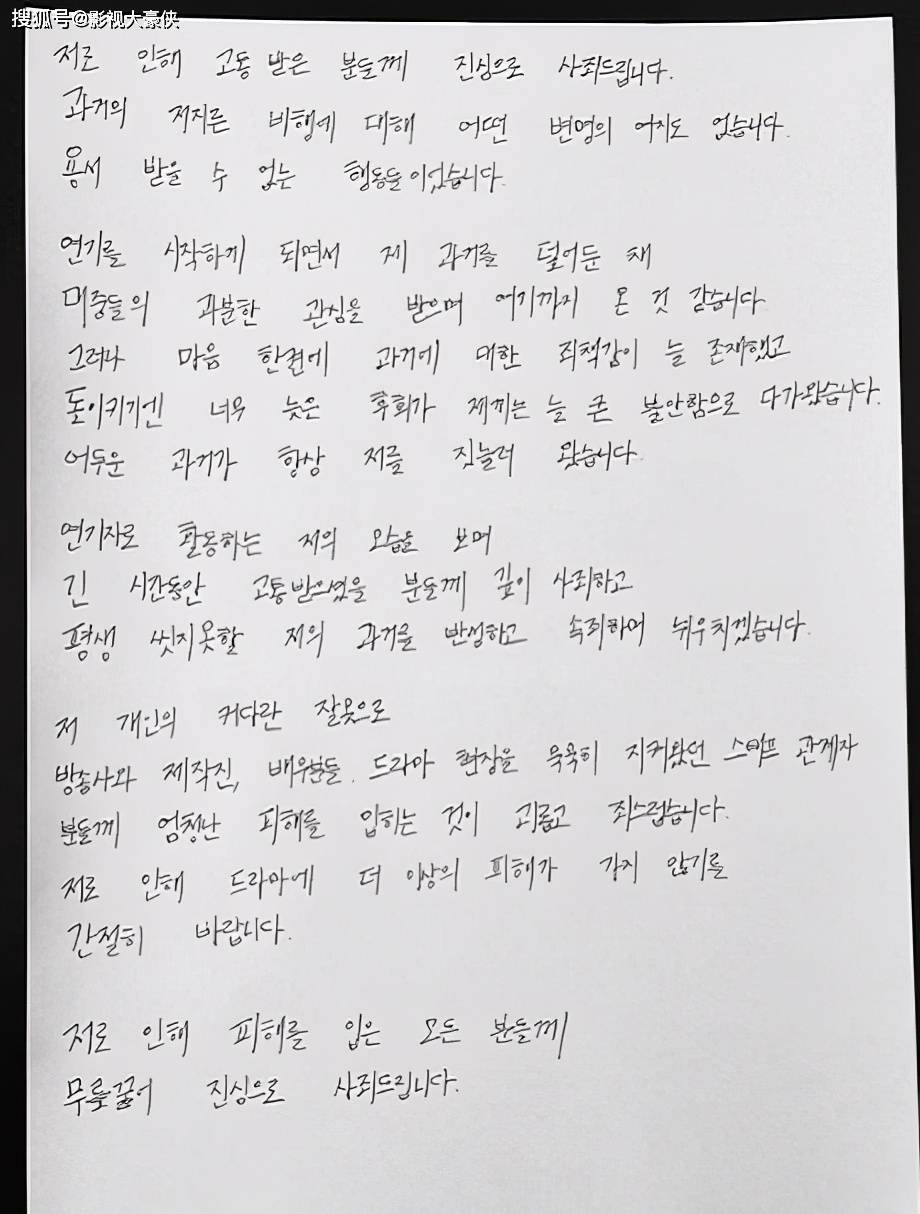 搜狐号@影视大豪侠
저로 인해 고통 받은 분들께 진심으로 사죄드립니다.
과거의 저지른 비행에 대해 어떤 변명의 여지도 없습니다.
용서 받을 수 없는 행동들이었습니다.
연기를 시작하게 되면서 제 과거를 덮어둔 채
대중들의 과분한 관심을 받으며 여기까지 온 것 같습니다
그러나 마음 한켠에 과거에 대한 죄책감이 늘 존재했고
돌이키기엔 너무 늦은 후회가 제게는 늘 큰 불안함으로 다가왔습니다.
어두운 과거가 항상 저를 짓눌러 왔습니다.
연기자로 활동하는 저의 모습을 보며
긴 시간동안 고통받으셨을 분들께 깊이 사죄하고
평생 씻지못할 저의 과거를 반성하고 속죄하며 뉘우치겠습니다.
저 개인의 커다란 잘못으로
방송사와 제작진, 배우분들, 드라마 현장을 묵묵히 지켜왔던 스태프 관계자
분들께 엄청난 피해를 입히는 것이 괴롭고 죄스럽습니다.
저로 인해 드라마에 더 이상의 피해가 가지 않기를
간절히 바랍니다.
저로 인해 피해를 입은 모든 분들께
무릎꿇어 진심으로 사죄드립니다.